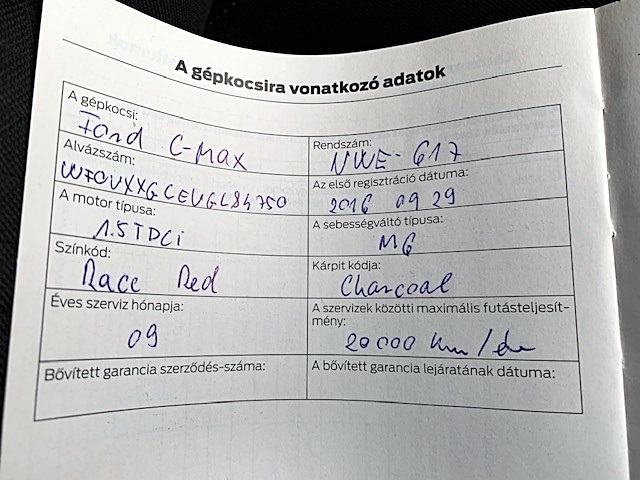 A gépkocsira vonatkozó adatok
A gépkocsi:
Ford C-MAX
Rendszám:
NWE-617
Alvázszám:
WF0VXXGCEVGL84750
Az első regisztráció dátuma:
2016 09 29
A motor típusa:
1.5 TDCi
A sebességváltó típusa:
M6
Színkód:
Race Red
Kárpit kódja:
Charcoal
Éves szerviz hónapja:
09
A szervizek közötti maximális futásteljesít-
mény:
20000 km/év
Bővített garancia szerződés-száma:
A bővített garancia lejáratának dátuma: